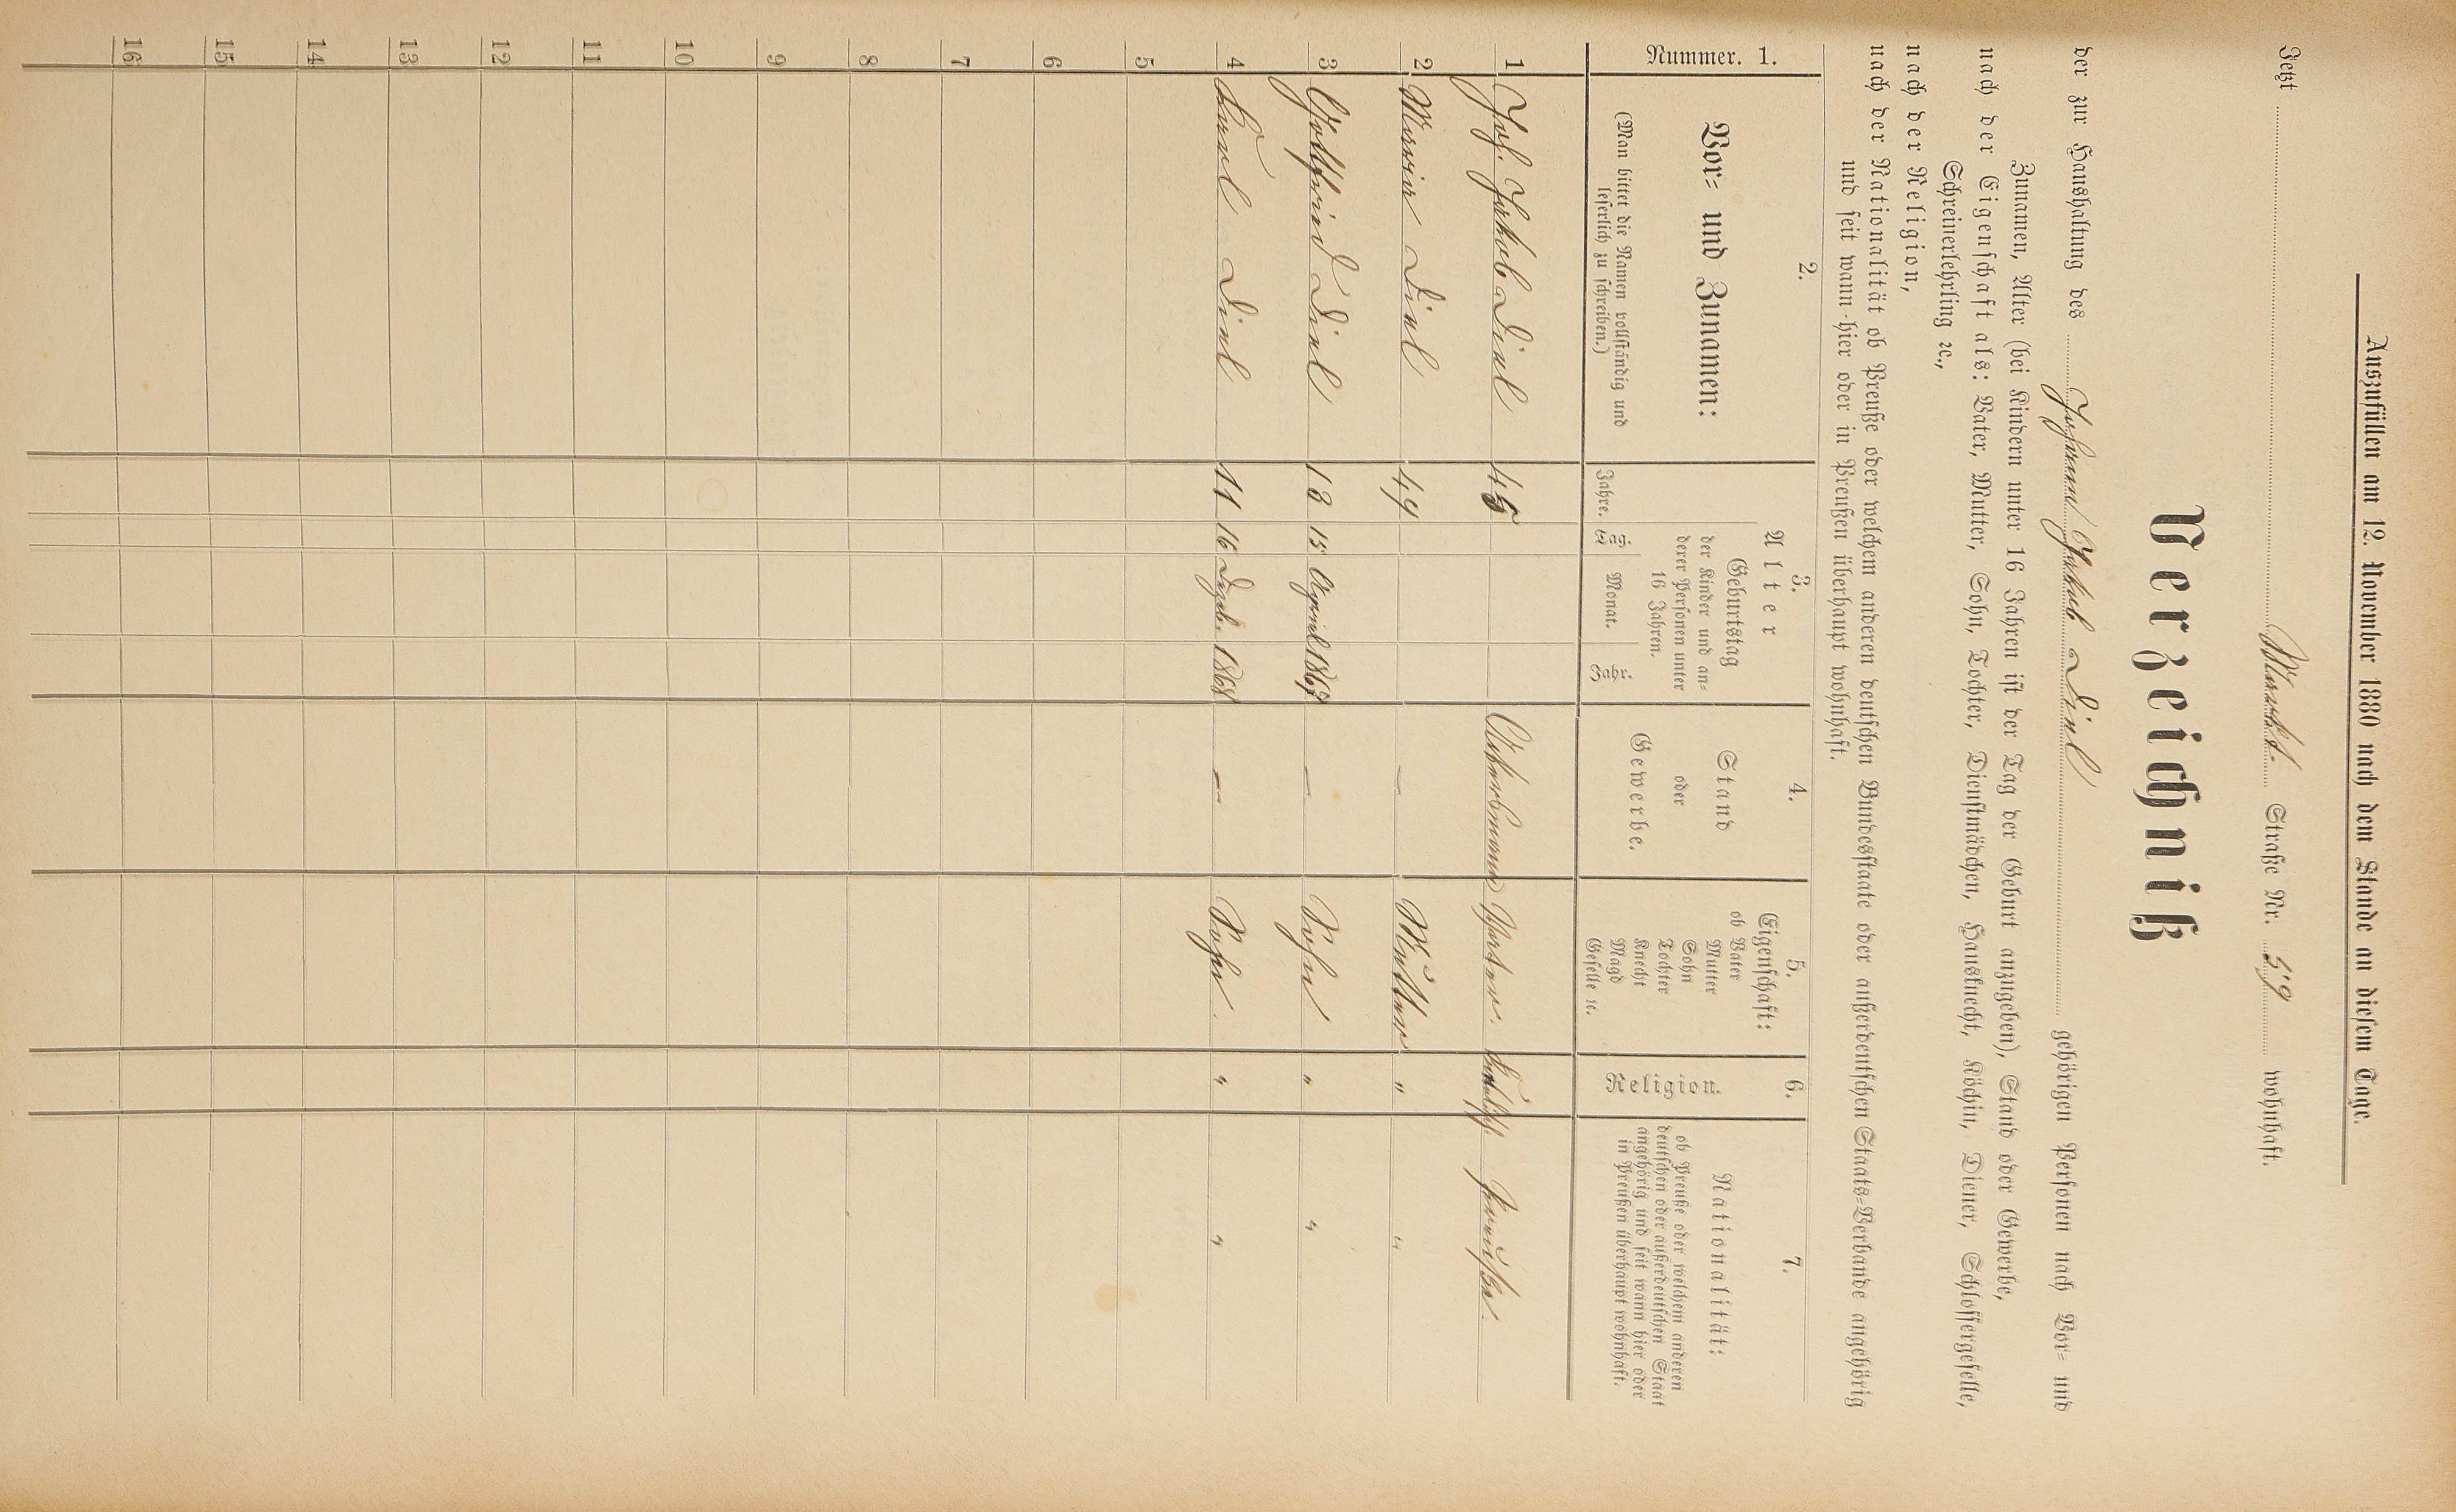 Auszufüllen am 12. November 1880 nach dem Stande an diesem Tage.
Jetzt Markt Straße Nr. 59 wohnhaft.
Verzeichniß
der zur Haushaltung des Johann Jakob Diel gehörigen Personen nach Vor- und
Zunamen, Alter (bei Kindern unter 16 Jahren ist der Tag der Geburt anzugeben), Stand oder Gewerbe,
nach der Eigenschaft als: Vater, Mutter, Sohn, Tochter, Dienstmädchen, Hausknecht, Köchin, Diener, Schlossergeselle,
Schreinerlehrling ꝛc.,
nach der Religion,
nach der Nationalität ob Preuße oder welchem anderen deutschen Bundesstaate oder außerdeutschen Staats-Verbande angehörig
und seit wann hier oder in Preußen überhaupt wohnhaft.
Nummer. 1.
2.
Vor- und Zunamen:
(Man bittet die Namen vollständig und
leserlich zu schreiben.)
3.
Alter
Jahre.
Geburtstag
der Kinder und an-
derer Personen unter
16 Jahren.
Tag. Monat. Jahr.
4.
Stand
oder
Gewerbe.
5.
Eigenschaft:
ob Vater
Mutter
Sohn
Tochter
Knecht
Magd
Geselle ꝛc.
6.
Religion.
7.
Nationalität:
ob Preuße oder welchem anderen
deutschen oder außerdeutschen Staat
angehörig und seit wann hier oder
in Preußen überhaupt wohnhaft.
1 Joh. Jakob Diel 45 Ackersmann Vater. kathlsch. Preuße.
2 Maria Diel 49 — Mutter " "
3 Gottfried Diel 13 15 April 1867 — Sohn " "
4 Karl Diel 11 16 Dezb. 1868 — Sohn. " "
5
6
7
8
9
10
11
12
13
14
15
16